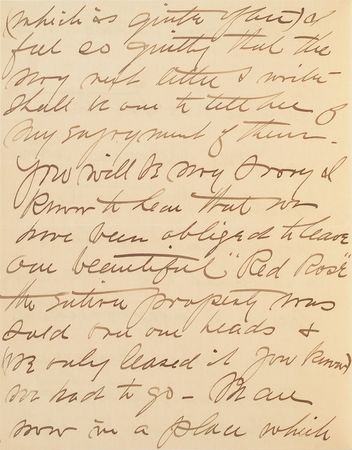 (which is quite often) I
feel so guilty that the
very next letter I write
shall be one to tell her of
my enjoyment of them.
You will be very sorry I
know to hear that we
have been obliged to leave
our beautiful "Red Rose"
the entire property was
sold over our heads &
(we only leased it you know)
we had to go - We are
now in a place which